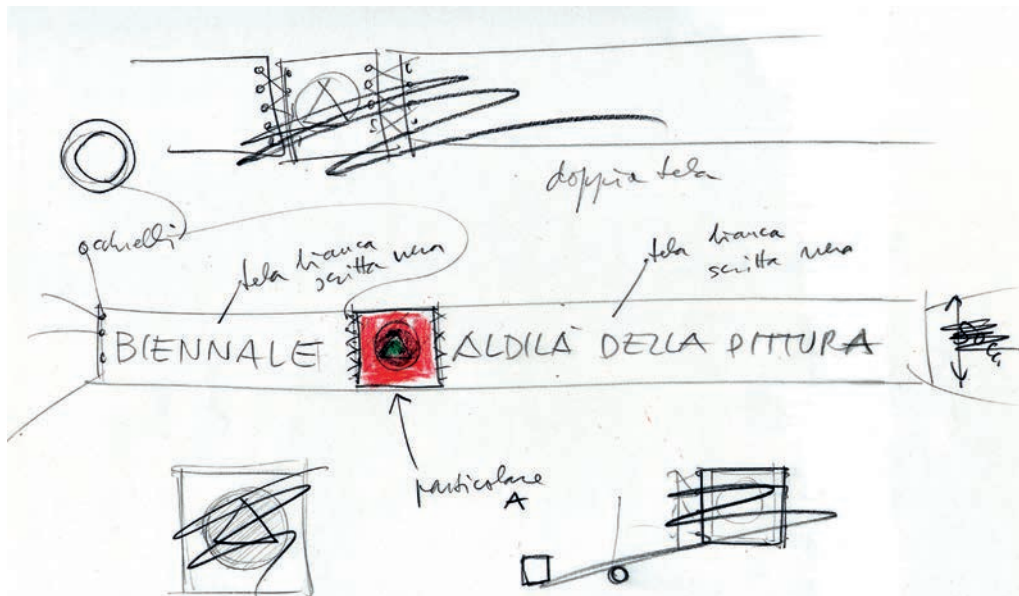 doppia tela
occhielli
tela bianca
scritta nera
tela bianca
scritta nera
BIENNALE ALDILÀ DELLA PITTURA
particolare
A